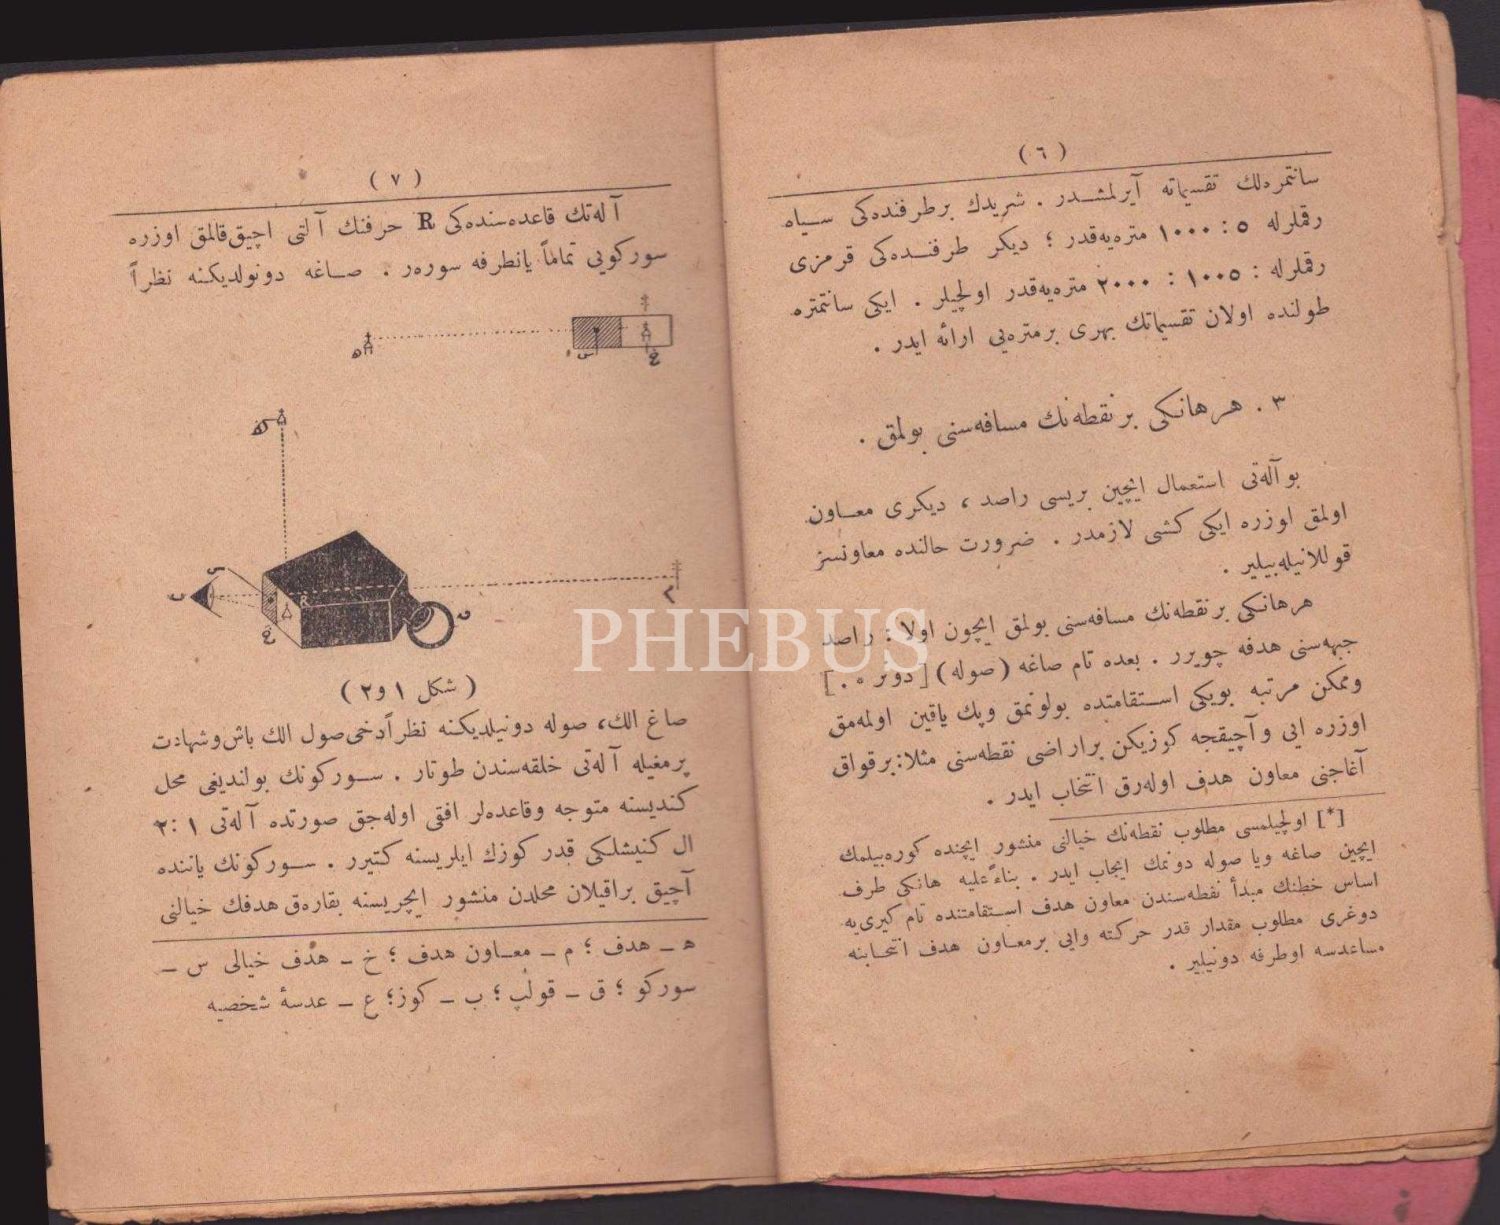 ( ٦ )
سانتمره‌لك تقسیماته آیرلمشدر . شریدك برطرفنده‌كی سیاه
رقملرله ٥ : ١٠٠٠ متره‌یه‌قدر ؛ دیكر طرفنده‌كی قرمزی
رقملرله : ١٠٠٥ : ٢٠٠٠ متره‌یه‌قدر اولچیلر . ایكی سانتمتره
طولنده اولان تقسیماتك بهری برمتره‌یی ارائه ایدر .
٣ . هرهانكی بر نقطه‌نك مسافه‌سنی بولمق .
بو آله‌تی استعمال ایچین بریسی راصد ، دیكری معاون
اولمق اوزره ایكی كشی لازمدر . ضرورت حالنده معاونسز
قوللانیله‌بیلیر .
هرهانكی بر نقطه‌نك مسافه‌سنی بولمق ایچون اولا : راصد
جبهه‌سنی هدفه چویرر . بعده تام صاغه (صوله) [دونر * .]
وممكن مرتبه بویكی استقامتده بولونمق وپك یاقین اولمه‌مق
اوزره ایی وآچیقجه كوزیكن براراضی نقطه‌سنی مثلا: برقواق
آغاجنی معاون هدف اوله‌رق انتخاب ایدر .
[*] اولچیلمسی مطلوب نقطه‌نك خیالنی منشور ایچنده كوره‌بیلمك
ایچین صاغه ویا صوله دونمك ایجاب ایدر . بناءً علیه هانكی طرف
اساس خطنك مبدأ نقطه‌سندن معاون هدف استقامتنده تام كیری‌یه
دوغری مطلوب مقدار قدر حركته وایی برمعاون هدف انتخابنه
مساعدسه اوطرفه دونیلیر .
( ٧ )
آله‌تك قاعده‌سنده‌كی R حرفنك آلتی اچیق‌قالمق اوزره
سوركویی تماماً یانطرفه سوره‌ر . صاغه دونولدیكنه نظراً
ه
س
خ
ه
س
ب
R
خ
م
ق
( شكل ١ و٢ )
صاغ الك، صوله دونیلدیكنه نظراًدخی‌صول الك باش‌وشهادت
پرمغیله آله‌تی خلقه‌سندن طوتار . سوركونك بولندیغی محل
كندیسنه متوجه وقاعده‌لر افقی اوله‌جق صورتده آله‌تی ١ : ٢
ال كنیشلكی قدر كوزك ایلریسنه كتیرر . سوركونك یاننده
آچیق براقیلان محلدن منشور ایچریسنه بقارەق هدفك خیالنی
ه ـ هدف ؛ م ـ معاون هدف ؛ خ ـ هدف خیالی س ـ
سوركو ؛ ق ـ قولپ ؛ ب ـ كوز؛ ع ـ عدسهٔ شخصیه
PHEBUS